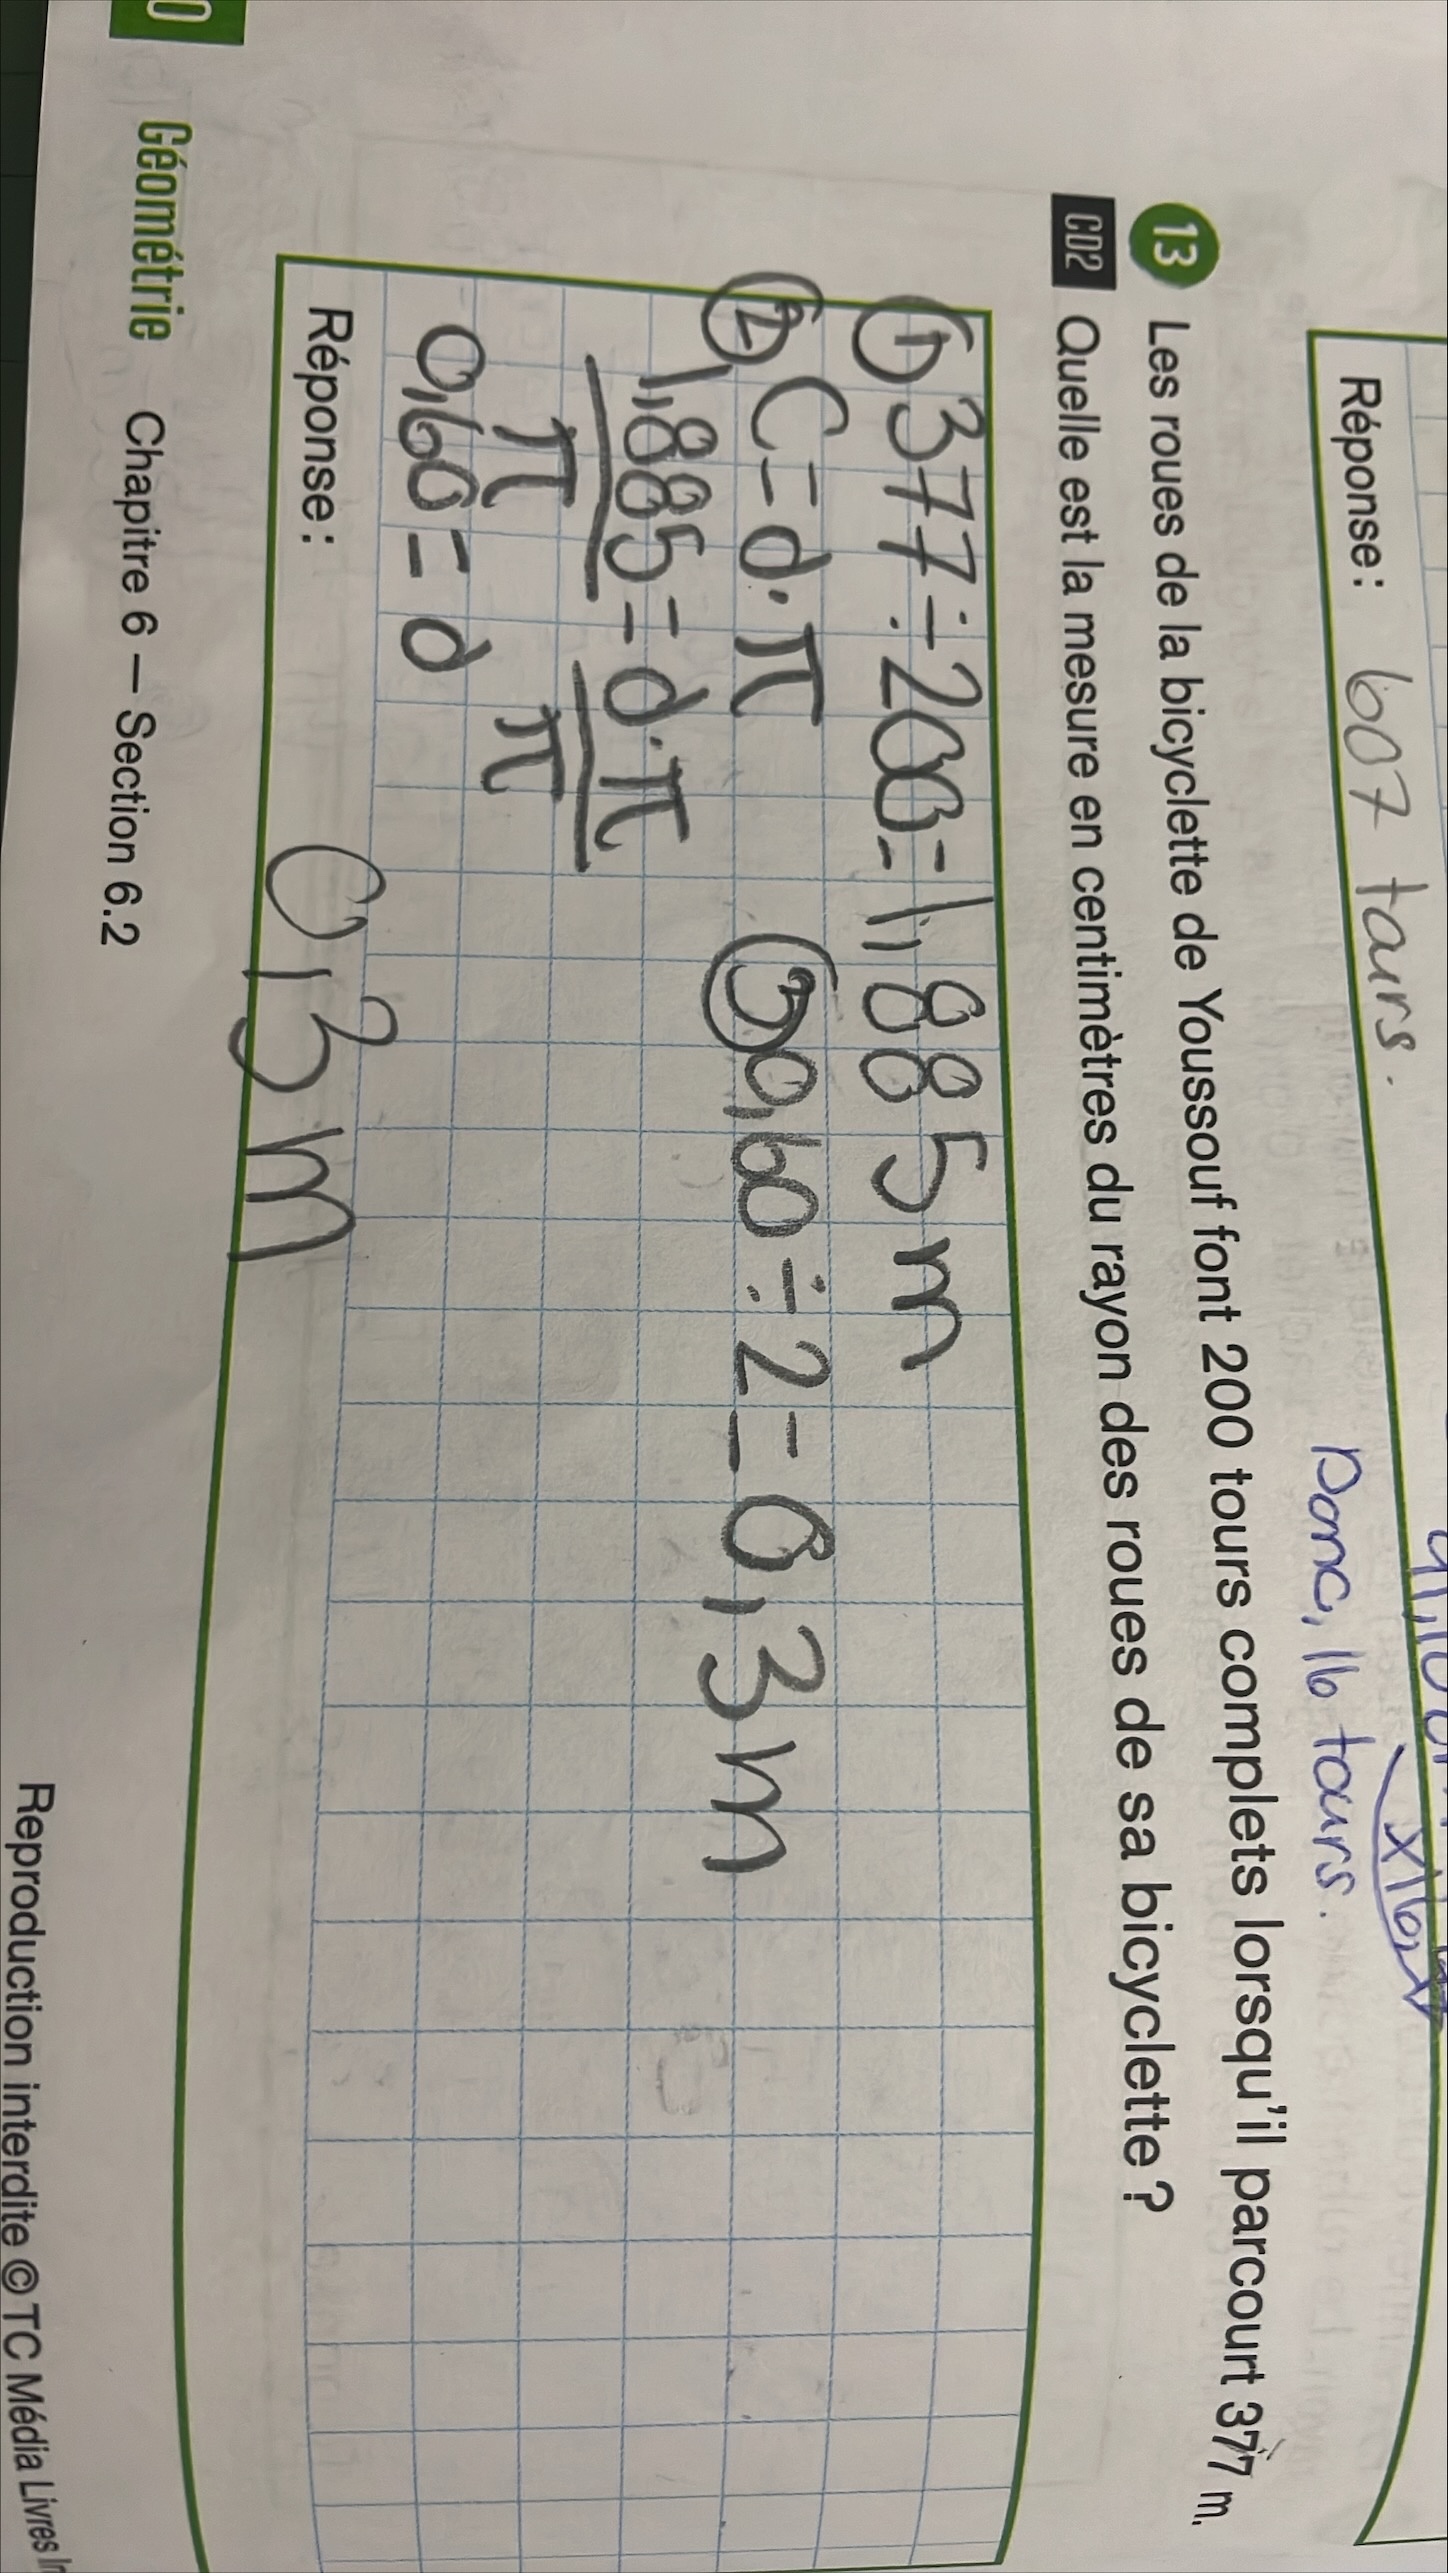 Réponse : 607 tours.
donc, 16 tours.
13 Les roues de la bicyclette de Youssouf font 200 tours complets lorsqu'il parcourt 377 m.
CD2 Quelle est la mesure en centimètres du rayon des roues de sa bicyclette ?
① 377 ÷ 200 = 1,885 m
② C = d · π
③ 0,60 ÷ 2 = 0,3 m
1,885 = d · π
π π
0,60 = d
Réponse : 0,3 m
0 Géométrie Chapitre 6 — Section 6.2
Reproduction interdite © TC Média Livres